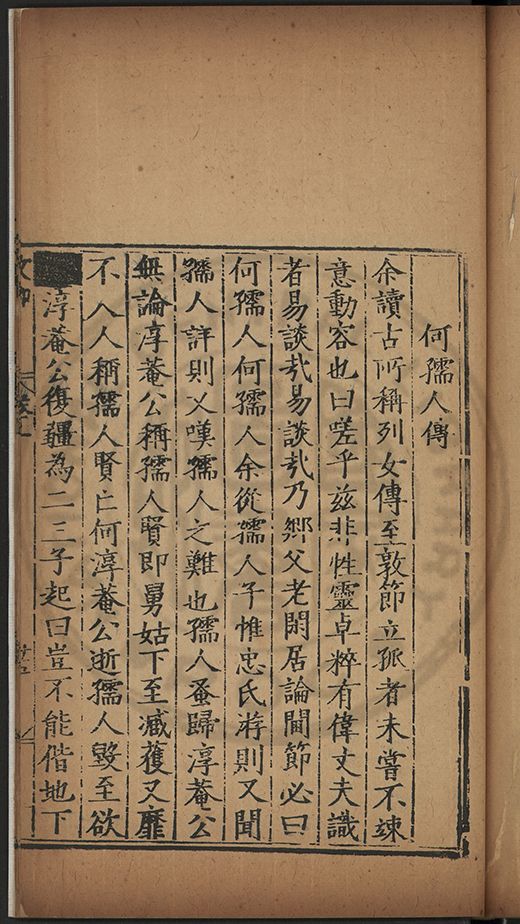 何孺人傳
余讀古所稱列女傳至敦節立孤者未嘗不竦
意動容也曰嗟乎茲非性靈卓粹有偉丈夫識
者易談哉易談哉乃鄉父老閑居論閫節必曰
何孺人何孺人余從孺人子惟忠氏游則又聞
孺人詳則又嘆孺人之難也孺人蚤歸淳菴公
無論淳菴公稱孺人賢即舅姑下至臧獲又靡
不人人稱孺人賢亡何淳菴公逝孺人毀至欲
淳菴公復彊為二三子起曰豈不能偕地下